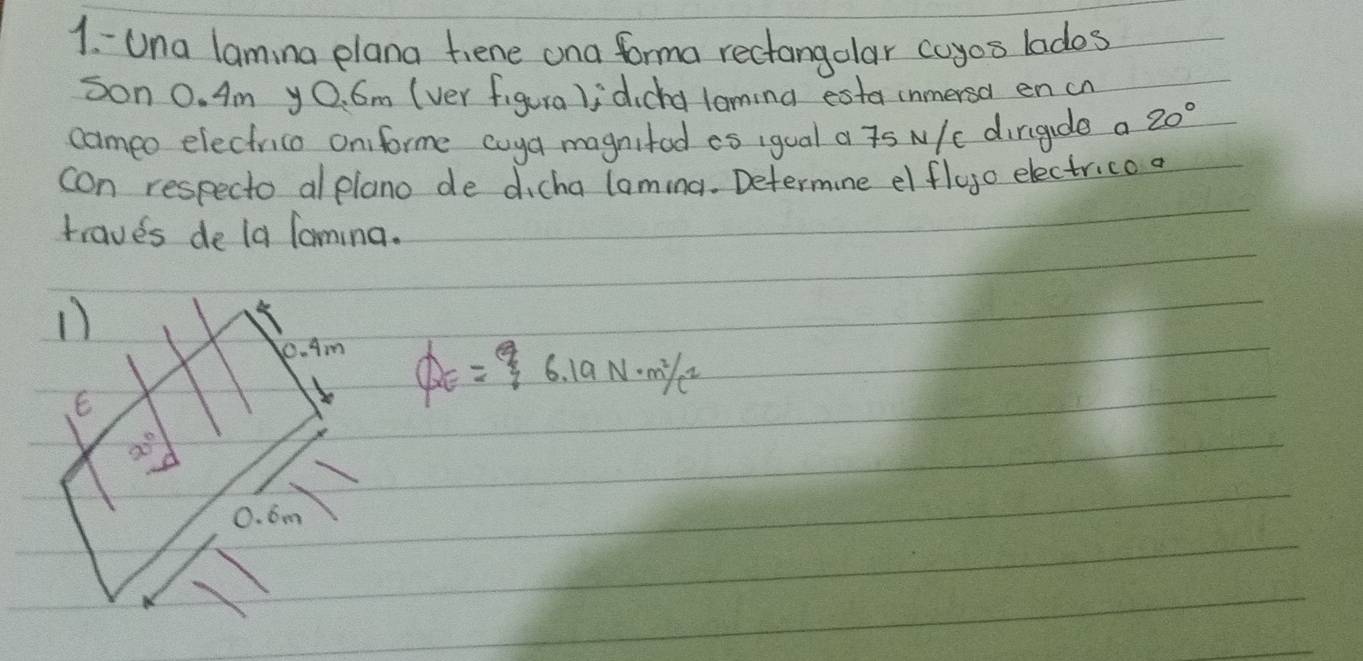 1.- Una lamina plana tiene una forma rectangular cuyos lados
son 0.4m y 0.6m (ver figura); dicha lamina esta inmersa en un
campo electrico uniforme cuya magnitud es igual a 75 N/C dirigido a 20°
con respecto al plano de dicha lamina. Determine el flujo electrico a
través de la lamina.
1)
0.4m
ϕE = ? 6.19 N·m²/c²
E
20°
0.6m